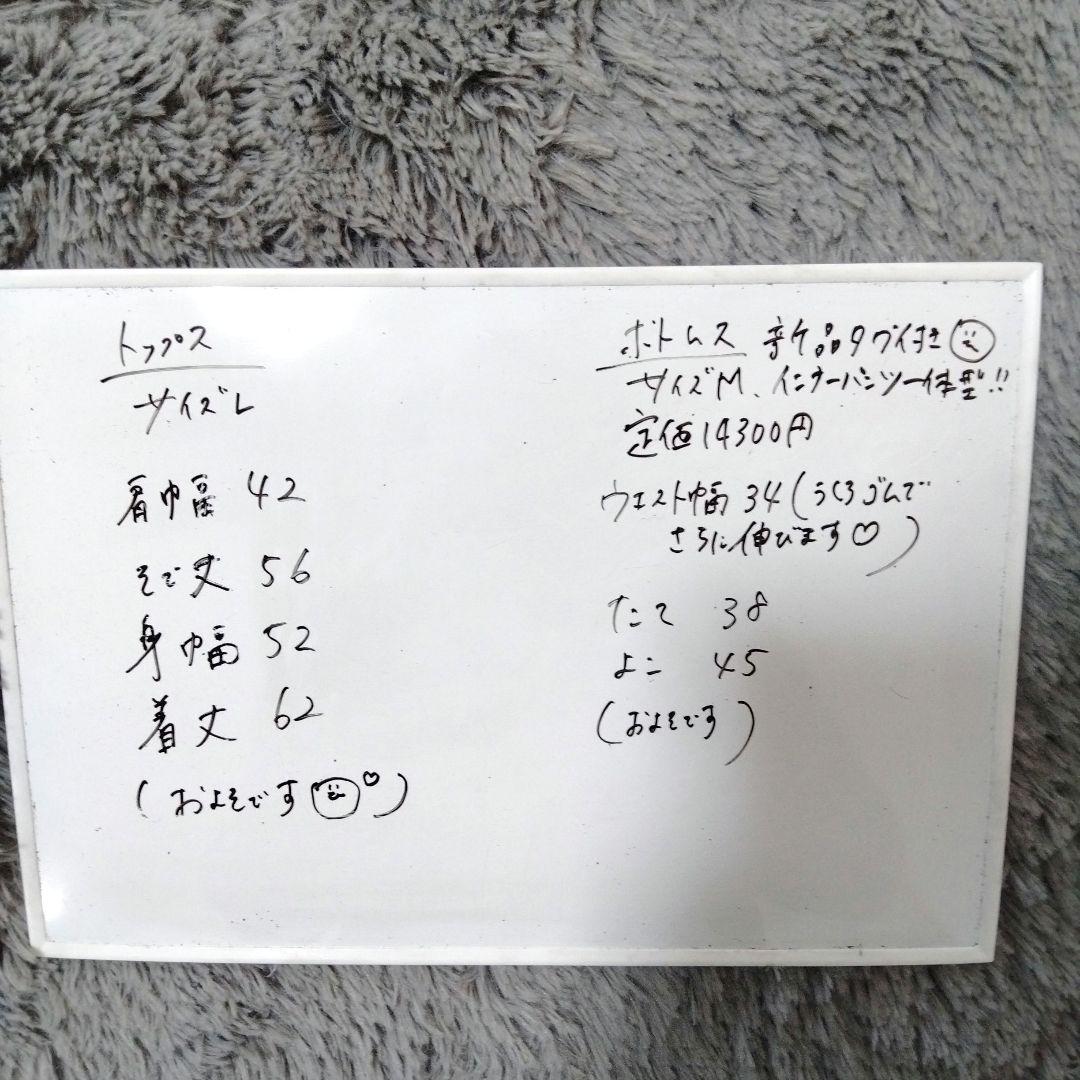 トップス
サイズL
肩巾幅 42
そで丈 56
身幅 52
着丈 62
(およそです♡)
ボトムス 新品タグ付き
サイズM、インナーパンツ一体型!!
定価14300円
ウエスト幅 34(うしろゴムで
さらに伸びます♡)
たて 38
よこ 45
(およそです)